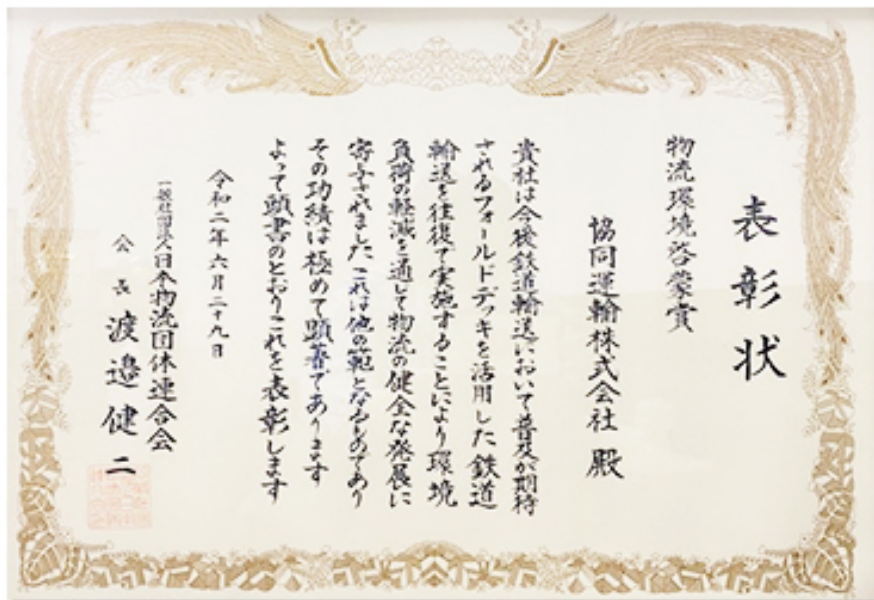 表彰状
物流環境啓蒙賞
協同運輸株式会社 殿
貴社は今後鉄道輸送において普及が期待
されるフォールドデッキを活用した鉄道
輸送を往復で実施することにより環境
負荷の軽減を通して物流の健全な発展に
寄与されました これは他の範となるものであり
その功績は極めて顕著であります
よって頭書のとおりこれを表彰します
令和二年六月二十九日
一般社団法人日本物流団体連合会
会長 渡邉健二